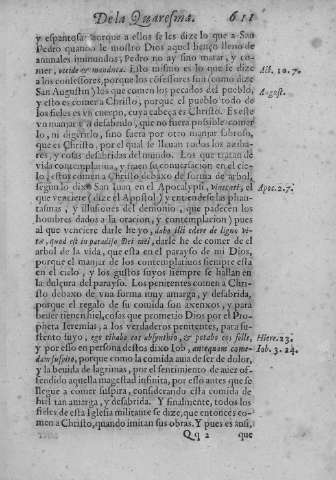 De la Quaresma. 611
y espantosa: porque a ellos se les dize lo que a San
Pedro quando le mostro Dios aquel lienço lleno de
animales inmundos, Pedro no ay sino matar, y co-
mer, occide & manduca. Esto mismo es lo que se dize Act. 10.7.
a los confessores, porque los cõfessores son (como dize
San Augustin) los que comen los pecados del pueblo, August.
y esto es comer a Christo, porque el pueblo todo de
los fieles es vn cuerpo, cuya cabeça es Christo. Es este
vn manjar tã desabrido, que no fuera possible comer
lo, ni digerirlo, sino fuera por otro manjar sabroso,
que es Christo, por el qual se lleuan todos los amba-
res, y cosas desabridas del mundo. Los que tratan de
vida contemplatiua, y traen su conuersacion en el cie-
lo, estos comen a Christo debaxo de forma de arbol,
segun lo dixo San Iuan en el Apocalypsi, Vincenti, el Apoc. 2.7.
que venciere (dize el Apostol) y entiendese las phan-
tasmas, y illusiones del demonio, que padecen los
hombres dados a la oracion, y contemplacion) pues
al que venciere darle he yo, dabo illi edere de ligno vi-
tæ, quod est in paradiso Dei mei, darle he de comer de el
arbol de la vida, que esta en el parayso de mi Dios,
porque el manjar de los contemplatiuos siempre esta
en el cielo, y los gustos suyos siempre se hallan en
la dulçura del parayso. Los penitentes comen a Chri-
sto debaxo de vna forma muy amarga, y desabrida,
porque el regalo de su comida son axenxos, y para
beuer tienen hiel, cosas que prometio Dios por el Pro-
pheta Ieremias, a los verdaderos penitentes, para su-
stento suyo, ego cibabo eos absynthio, & potabo eos felle, Hiere. 23.
y por esso en persona destos dixo Iob, antequam come- Iob. 3. 24.
dam suspiro, porque como la comida aua de ser de dolor,
y la beuida de lagrimas, por el sentimiento de auer of-
fendido aquella magestad infinita, por esso antes que se
llegue a comer suspira, considerando esta comida de
hiel tan amarga, y desabrida. Y finalmente, todos los
fieles de esta Iglesia militante se dize, que entonces co-
men a Christo, quando imitan sus obras. Y pues es assi,
Qq 2 que